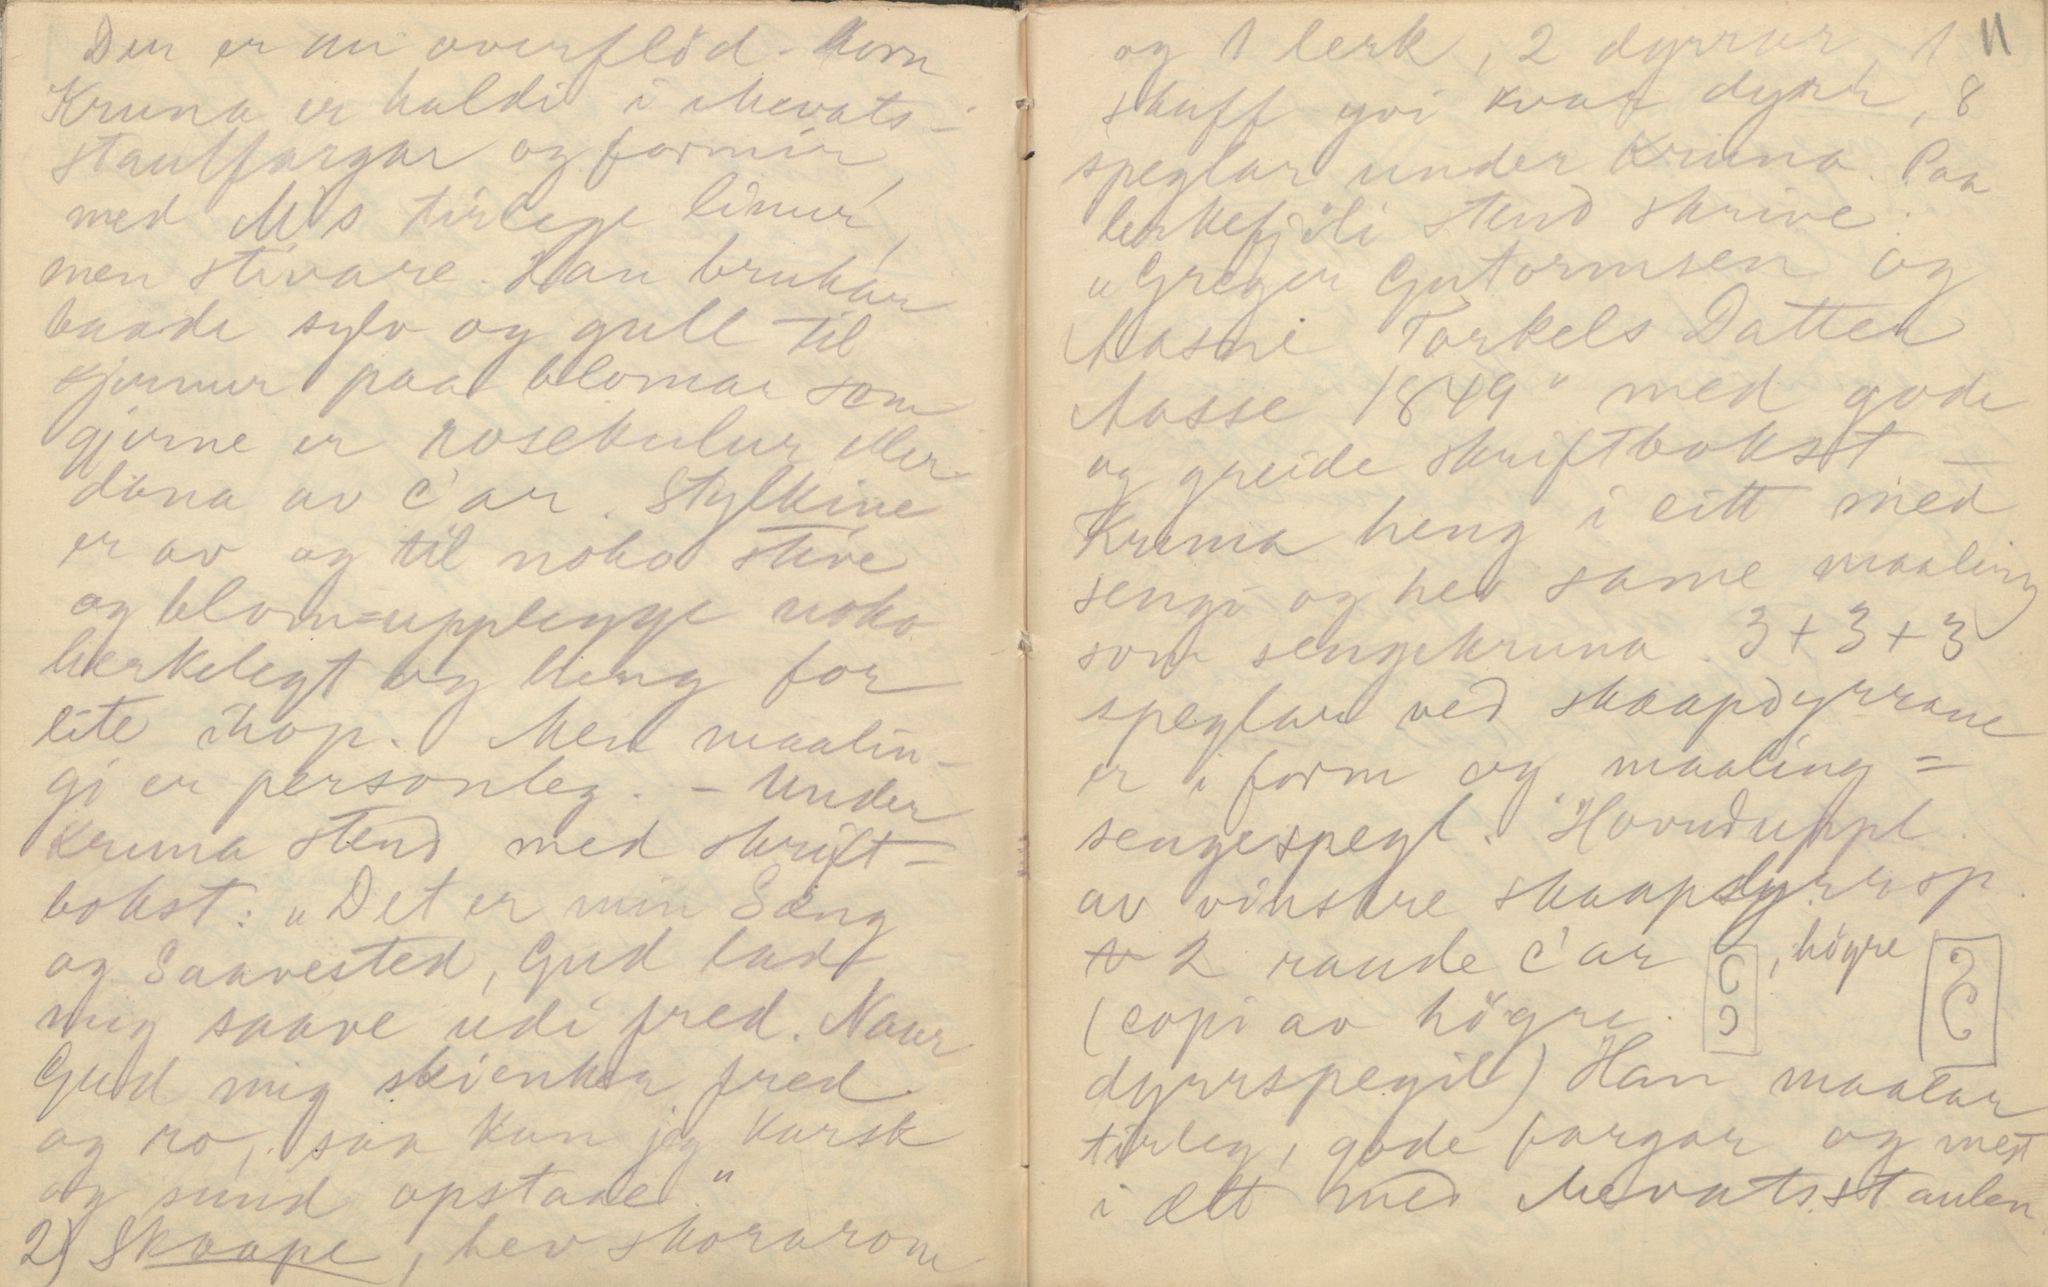 Den er nu overflöd. Korn
Kruna er haldi i Mevats-
staulfargar og formir,
med M's tirlege linur,
men stivare. Han brukar
baade sylv og gull til
kjernur paa blomar som
gjerne er rosekulur eller
döna av c'ar. Stylkine
er av og til noko stive
og blom=upplegge noko
herkelegt og heng for
lite ihop. Men maalin-
gi er personleg. – Under
Kruna stend med skrift-
bokst: „Det er min Sæng
og Saavested, Gud lad
mig saave udi fred. Naar
Gud mig skienker fred
og ro, saa kan jeg karsk
og sund opstaae."
2) Skaape, hev skorarom
og 1 lerk, 2 dyrrar, 1 11
skuff yvi kvar dyrr, 8
speglar under Kruna. Paa
lerkefjöli stend skrive:
„Greger Gutormsen og
Aasne Torkels Datter
Aasse 1849" med gode
og greide skriftbokst. –
Kruna heng i eitt med
sengi og hev same maaling
som sengekruna. 3+3+3
speglar ved skaapdyrrane
er i form og maaling =
sengespegl. Hovuduppl.
av vinstre skaapdyrrsp.
2 raude c'ar , högre
(copi av högre
dyrrspegil) Han maalar
tirleg, gode fargar og mest
i ætt med Mevatsstaulen